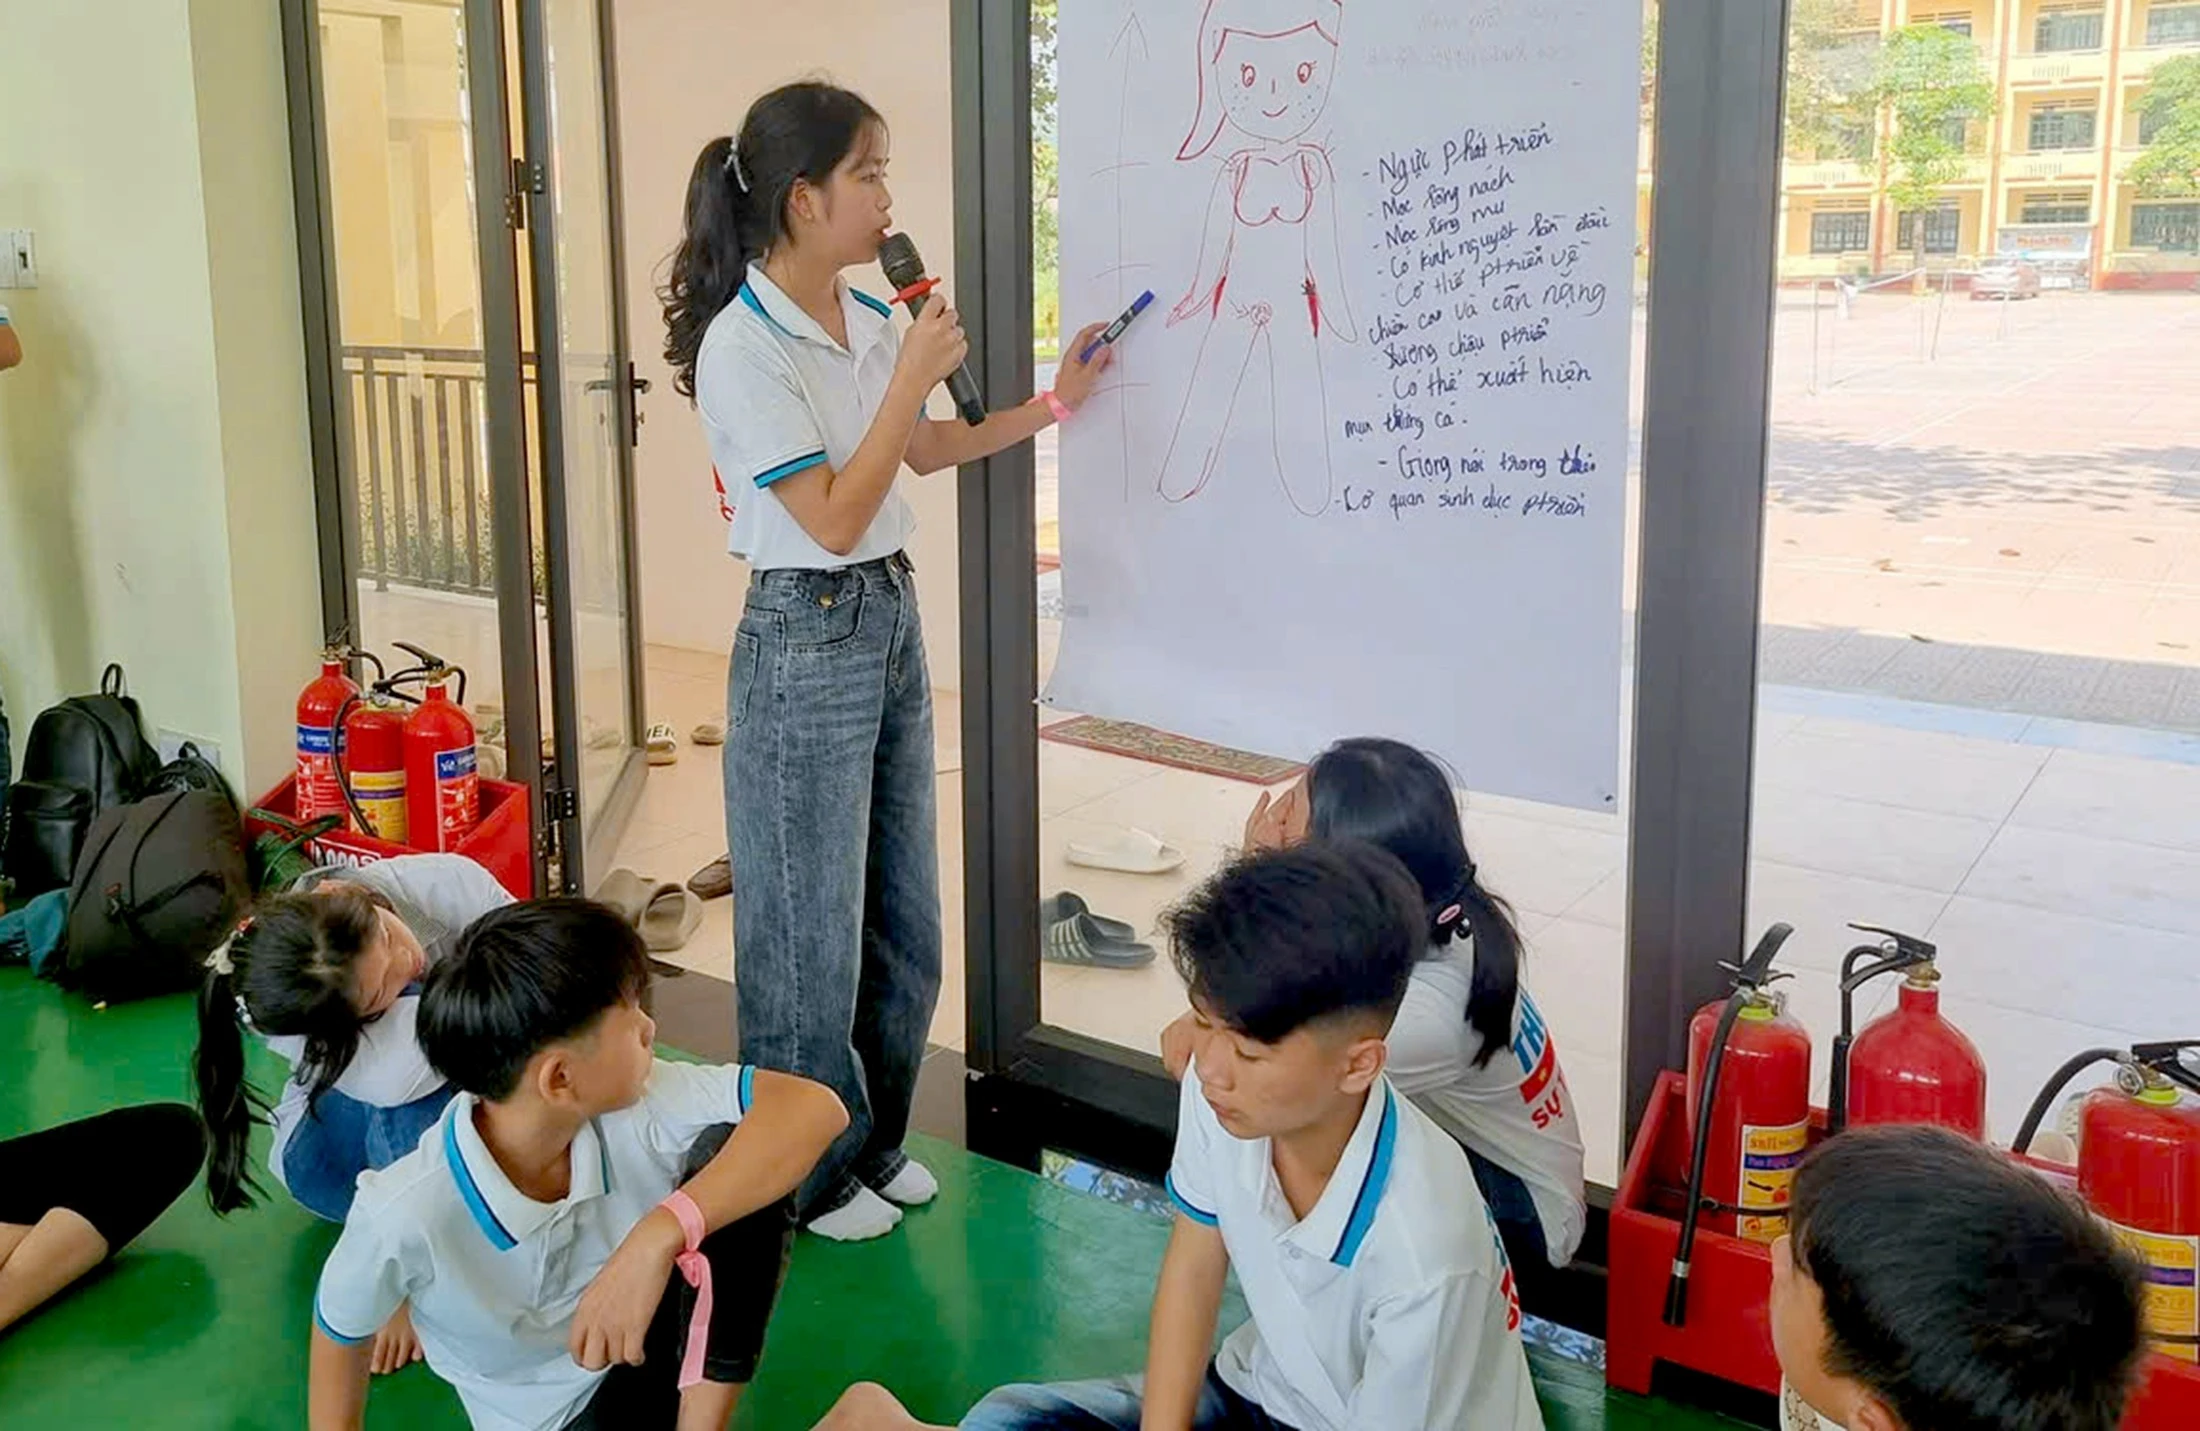 - Ngực phát triển
- Mọc lông nách
- Mọc lông mu
- Có kinh nguyệt lần đầu
- Cơ thể ptriển về
chiều cao và cân nặng
- Xương chậu ptriển
- Có thể xuất hiện
mụn trứng cá.
- Giọng nói trong
- Cơ quan sinh dục ptriển
SỰ